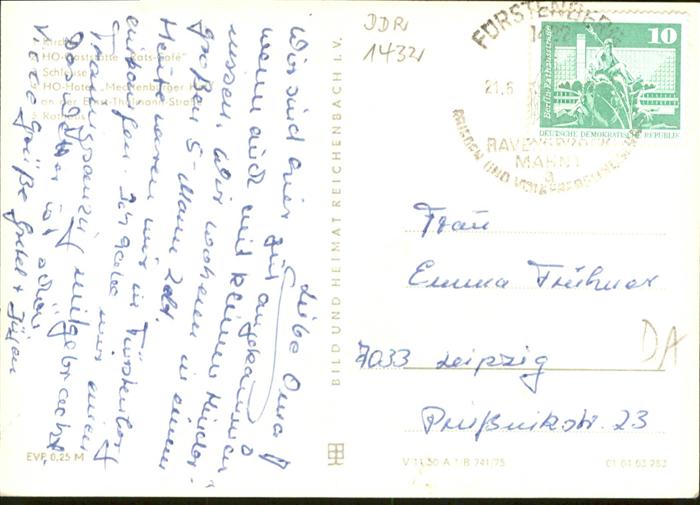 Liebe Oma!
Wir sind hier gut angekommen
wenn auch mit kleinen Hinder-
nissen. Wir wohnen in einem
großen 5-Mann Zelt.
Heute waren wir in Fürstenberg
einkaufen. Ich habe mir einen
Trainingsanzug mitgebracht.
Das Wetter ist schön.
Viele Grüße Gretel + Jürgen
Kirche
HO-Gaststätte "Rats-Café"
Schleuse
HO-Hotel "Mecklenburger
an der Ernst-Thälmann-Straße
Rathaus
EVP 0,25 M
BILD UND HEIMAT REICHENBACH I. V.
V 11 50 A 1 B 741/75
01 04 03 262
DDR
1432
FÜRSTENBERG
1432
21.6
RAVENSBRÜCK
MAHNT
a
FRIEDEN UND VÖLKERFREUNDSCHAFT
10
Berlin, Rathausstraße
DEUTSCHE DEMOKRATISCHE REPUBLIK
Frau
Emma Frühner
7033 Leipzig
Prießnitzstr. 23
DA